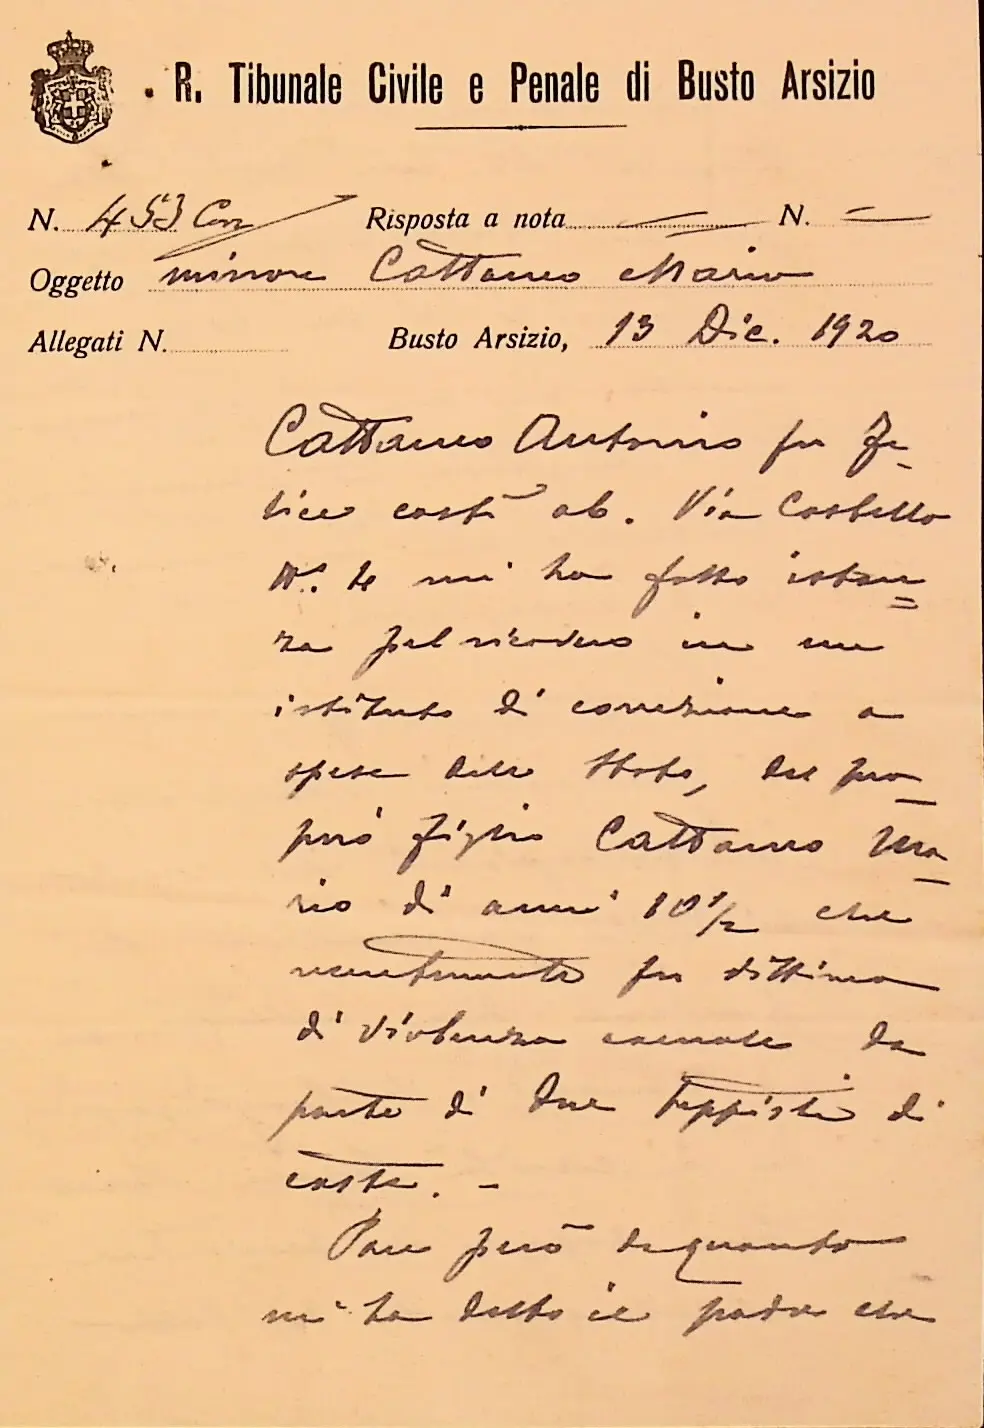 R. Tibunale Civile e Penale di Busto Arsizio
N. 453 Cor Risposta a nota N.
Oggetto minore Cattaneo Mario
Allegati N. Busto Arsizio, 13 Dic. 1920
Cattaneo Antonio fu Fe-
lice costì ab. Via Castello
N. 4 mi ha fatto istan=
za pel ricovero in un
istituto di correzione a
spese dello Stato, del pro-
prio figlio Cattaneo Ma-
rio di anni 10 1/2 che
recentemente fu vittima
di violenza carnale da
parte di due teppisti di
costì. -
Pare però da quanto
mi ha detto il padre che